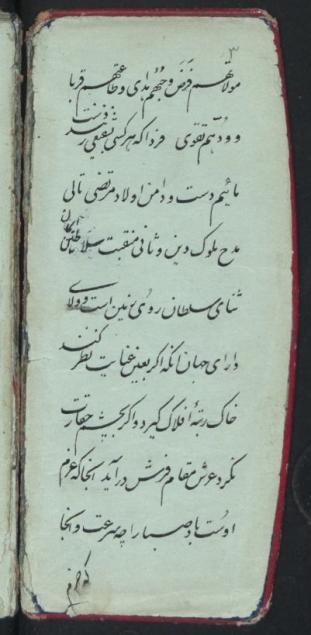 ۳
مولاتهم فرض و حبّهم هدی و طاعتهم قربا
و ودّهم تقوی فردا که هر کسی بشفیعی زند دست
مائیم دست و دامن اولاد مرتضی تالی
مدح ملوک دین و ثانی منقبت سلاطین
ثنای سلطان روی زمین است و ولای
دارای جهان آنکه اگر بعین عنایت نظر کند
خاک رتبهٔ افلاک گیرد و اگر بچشم حقارت
نگرد عرش مقام فرش در آید آنجا که عزم
اوست باد صبا را چه سرعت و آنجا
که حزم